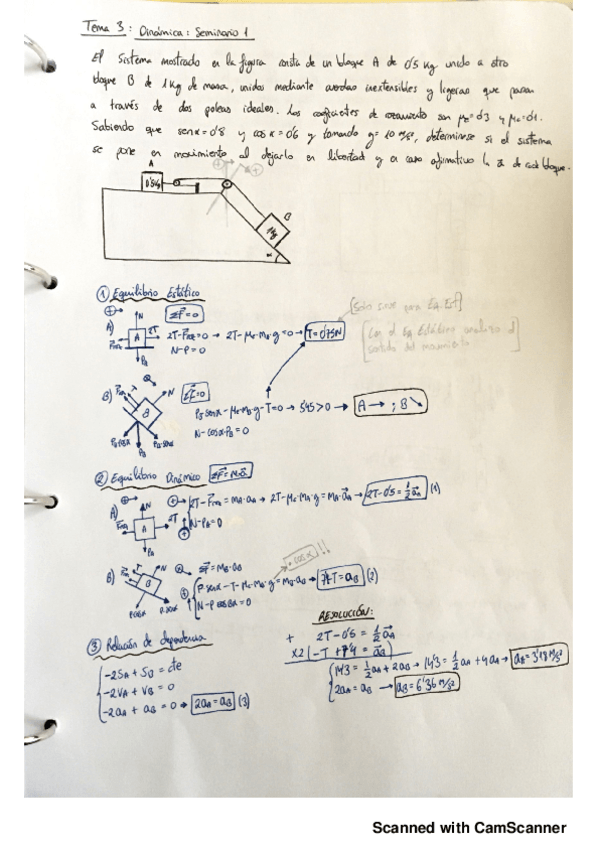 Tema 3: Dinámica: Seminario 1
El sistema mostrado en la figura consta de un bloque A de 0'5 kg unido a otro
bloque B de 1 kg de masa, unidos mediante cuerdas inextensibles y ligeras que pasan
a través de dos poleas ideales. Los coeficientes de rozamiento son μe=0'3 y μc=0'1.
Sabiendo que senα=0'8 y cosα=0'6 y tomando g=10 m/s², determínese si el sistema
se pone en movimiento al dejarlo en libertad y en caso afirmativo la a de cada bloque.
A
0'5kg
B
1kg
α
① Equilibrio Estático
ΣF=0
A)
N
A
2T
PA
2T-FRA=0 → 2T-μe·mA·g=0 → T=0'75N
N-P=0
[Sólo sirve para Eq. Est]
[Con el Eq. Estático analizo el
sentido del movimiento]
B)
ΣF=0
N
B
PB
PB·senα
PB senα-μe·mB·g-T=0 → 5'45>0 → A→ ; B↘
N-cosα·PB=0
② Equilibrio Dinámico ΣF=m·a
A)
N
A
2T
PA
2T-FRA=mA·aA → 2T-μc·mA·g=mA·aA → 2T-0'5=1/2 aA (1)
N-PA=0
·cosα !!
B)
T
N
B
ΣF=mB·aB
P·senα-T-μc·mB·g=mB·aB → 7'4-T=aB (2)
N-P cosα=0
③ Relación de dependencia
-2SA+SB=cte
-2VA+VB=0
-2aA+aB=0 → 2aA=aB (3)
RESOLUCIÓN:
+ 2T-0'5=1/2 aA
x2(-T+7'4=aB)
14'3=1/2 aA+2aB → 14'3=1/2 aA+4aA → aB=3'18 m/s²
2aA=aB → aB=6'36 m/s²
Scanned with CamScanner